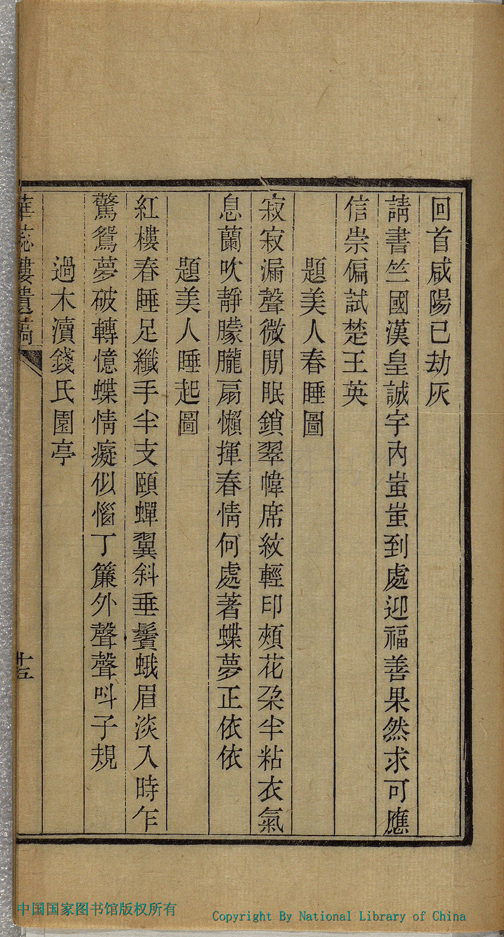 回首咸陽已劫灰
請書竺國漢皇誠宇內蚩蚩到處迎福善果然求可應
信崇偏試楚王英
題美人春睡圖
寂寂漏聲微閒眠鎖翠幃席紋輕印頰花朶半粘衣氣
息蘭吹靜朦朧扇懶揮春情何處著蝶夢正依依
題美人睡起圖
紅樓春睡足纖手半支頤蟬翼斜垂鬢蛾眉淡入時乍
驚鴛夢破轉憶蝶情癡似惱丁簾外聲聲呌子規
過木瀆錢氏園亭
樓遺稿
十五
中国国家图书馆版权所有
Copyright By National Library of China